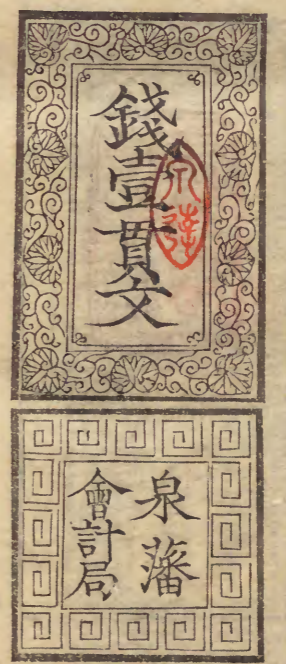 錢壹貫文
泉藩
會計局